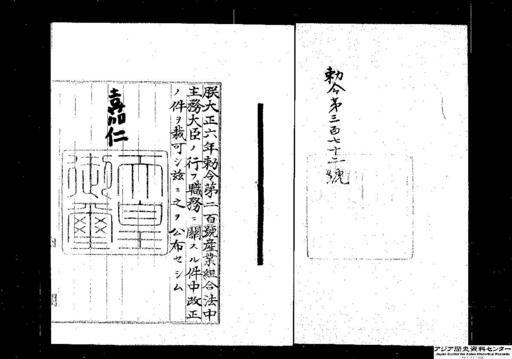 勅令第三百七十二號
朕大正六年勅令第二百號産業組合法中
主務大臣ノ行フ職務ニ關スル件中改正
ノ件ヲ裁可シ玆ニ之ヲ公布セシム
嘉仁
天皇
御璽
アジア歴史資料センター
Japan Center for Asian Historical Records